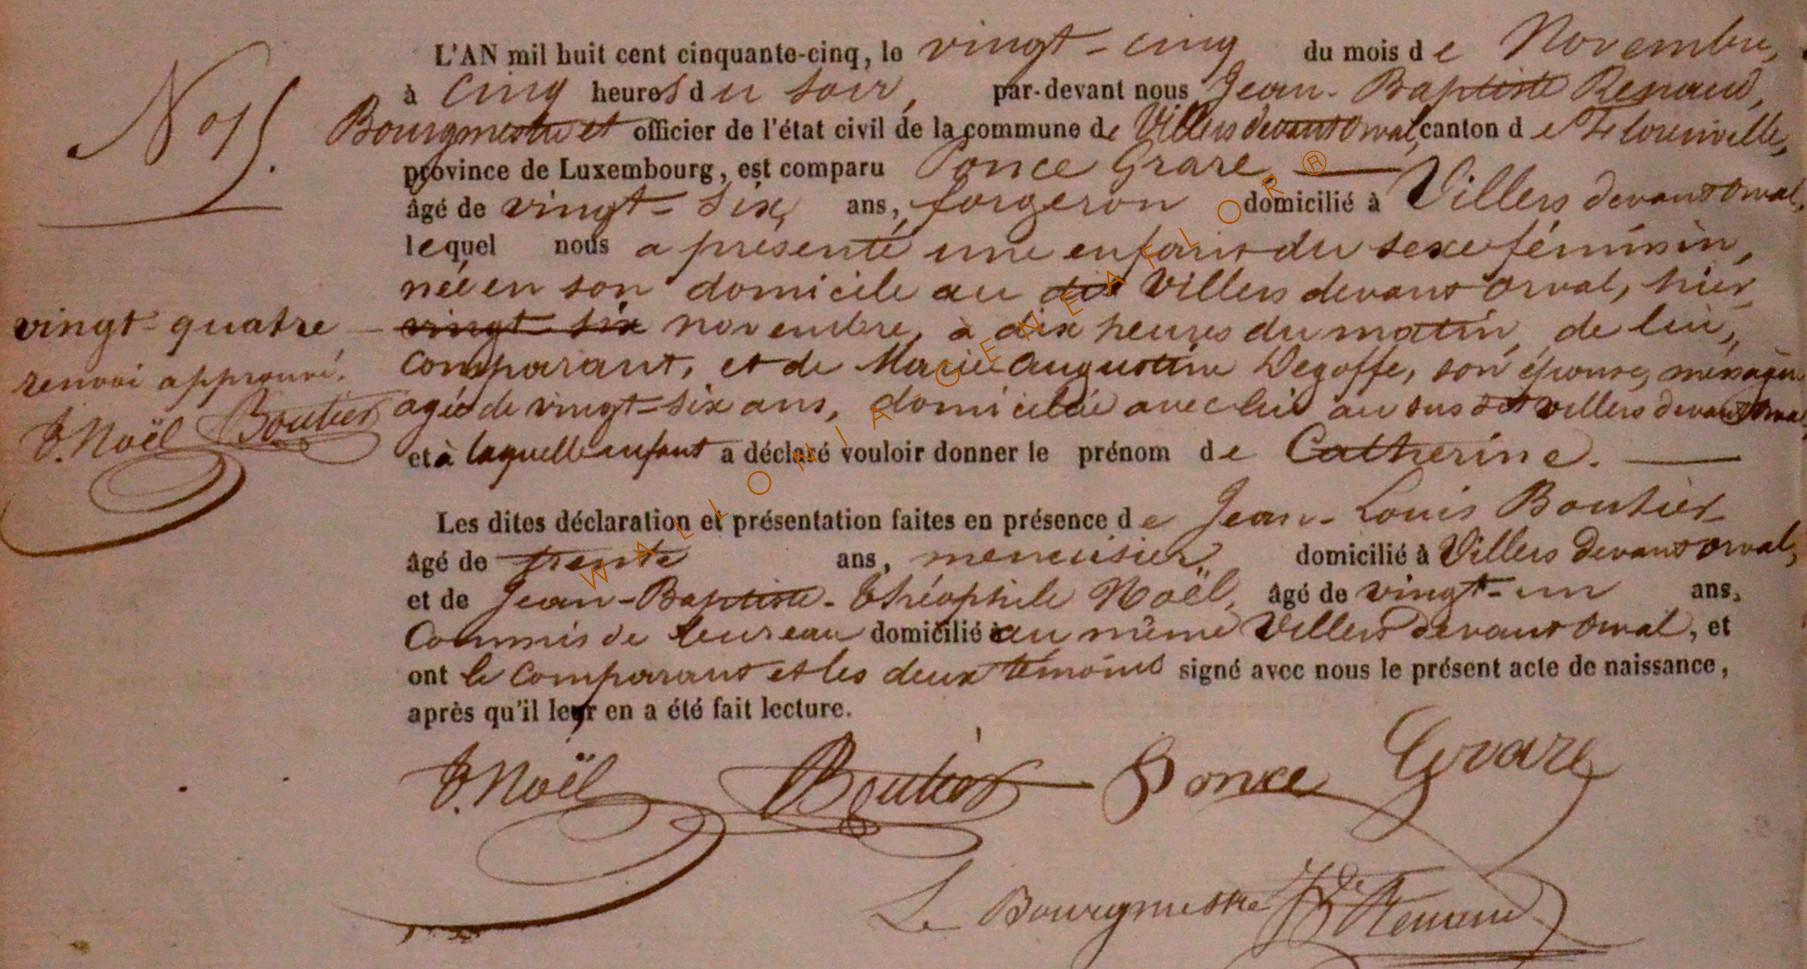 N° 15.
L'AN mil huit cent cinquante-cinq, le vingt-cinq du mois de Novembre,
à cinq heures du soir, par-devant nous Jean-Baptiste Renaud,
Bourgmestre et officier de l'état civil de la commune de Villers devant Orval, canton de Florenville,
province de Luxembourg, est comparu Ponce Grare
âgé de vingt-six, ans, forgeron domicilié à Villers devant Orval,
lequel nous a présenté une enfant du sexe féminin,
née en son domicile au dit Villers devant Orval, hier
vingt-quatre
vingt six novembre, à dix heures du matin, de lui,
renvoi approuvé.
comparant, et de Marie Augustine Degoffe, son épouse, ménagère
T. Noël Boutier
agée de vingt-six ans, domiciliée avec lui au susdit Villers devant Orval,
et à laquelle enfant a déclaré vouloir donner le prénom de Catherine.
Les dites déclaration et présentation faites en présence de Jean-Louis Boutier
âgé de trente ans, menuisier domicilié à Villers devant Orval,
et de Jean-Baptiste-Théophile Noël, âgé de vingt-un ans,
Commis de bureau domicilié au même Villers devant Orval, et
ont le comparant et les deux témoins signé avec nous le présent acte de naissance,
après qu'il leur en a été fait lecture.
T. Noël Boutier Ponce Grare
Le Bourgmestre JB Renaud
WALLONIA GENEAFLOR ®